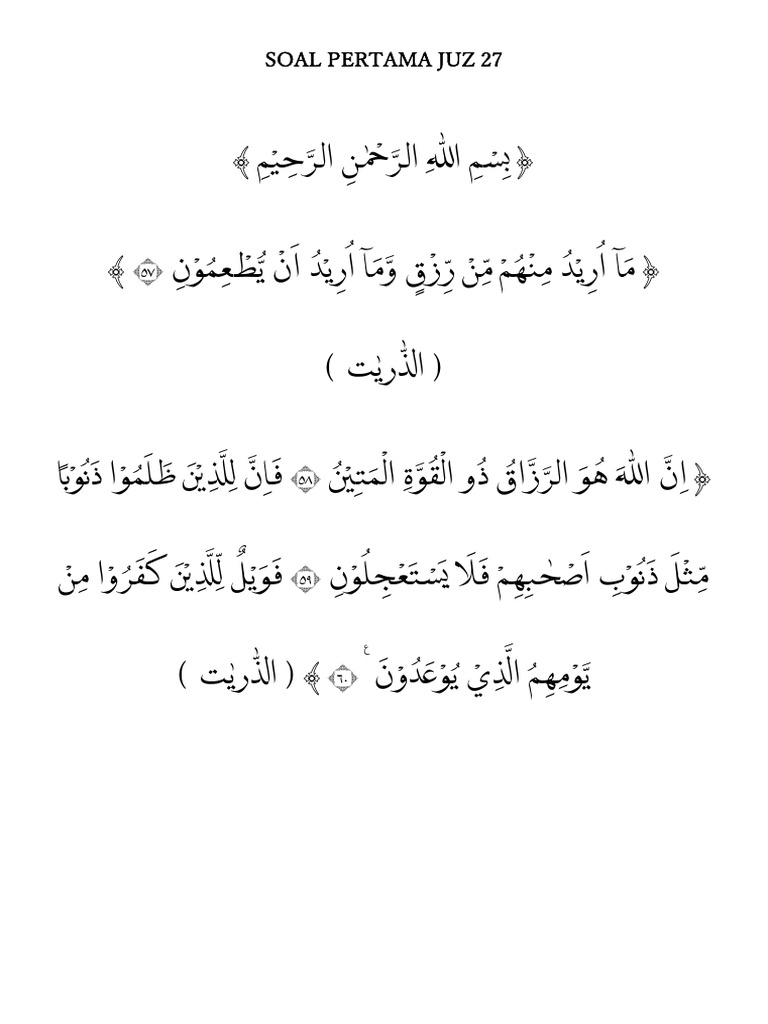 SOAL PERTAMA JUZ 27
﴿ بِسْمِ اللّٰهِ الرَّحْمٰنِ الرَّحِيْمِ ﴾
﴿ مَآ اُرِيْدُ مِنْهُمْ مِّنْ رِّزْقٍ وَّمَآ اُرِيْدُ اَنْ يُّطْعِمُوْنِ ۝٥٧ ﴾
( الذّٰريٰت )
﴿ اِنَّ اللّٰهَ هُوَ الرَّزَّاقُ ذُو الْقُوَّةِ الْمَتِيْنُ ۝٥٨ فَاِنَّ لِلَّذِيْنَ ظَلَمُوْا ذَنُوْبًا
مِّثْلَ ذَنُوْبِ اَصْحٰبِهِمْ فَلَا يَسْتَعْجِلُوْنِ ۝٥٩ فَوَيْلٌ لِّلَّذِيْنَ كَفَرُوْا مِنْ
يَّوْمِهِمُ الَّذِيْ يُوْعَدُوْنَ ࣖ ۝٦٠ ﴾ ( الذّٰريٰت )